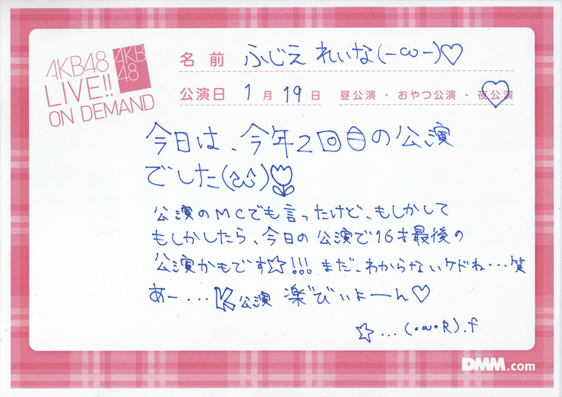 AKB48
LIVE!!
ON DEMAND
AKB
48
名前 ふじえ れいな(-ω-)♡
公演日 1月19日 昼公演・おやつ公演・夜公演
今日は、今年2回目の公演
でした(^ω^)
公演のMCでも言ったけど、もしかして
もしかしたら、今日の公演で16才最後の
公演かもです☆!!! まだ、わからないケドね…笑
あー…K公演 楽びぃよーん♡
☆…(・ω・R).f
DMM.com